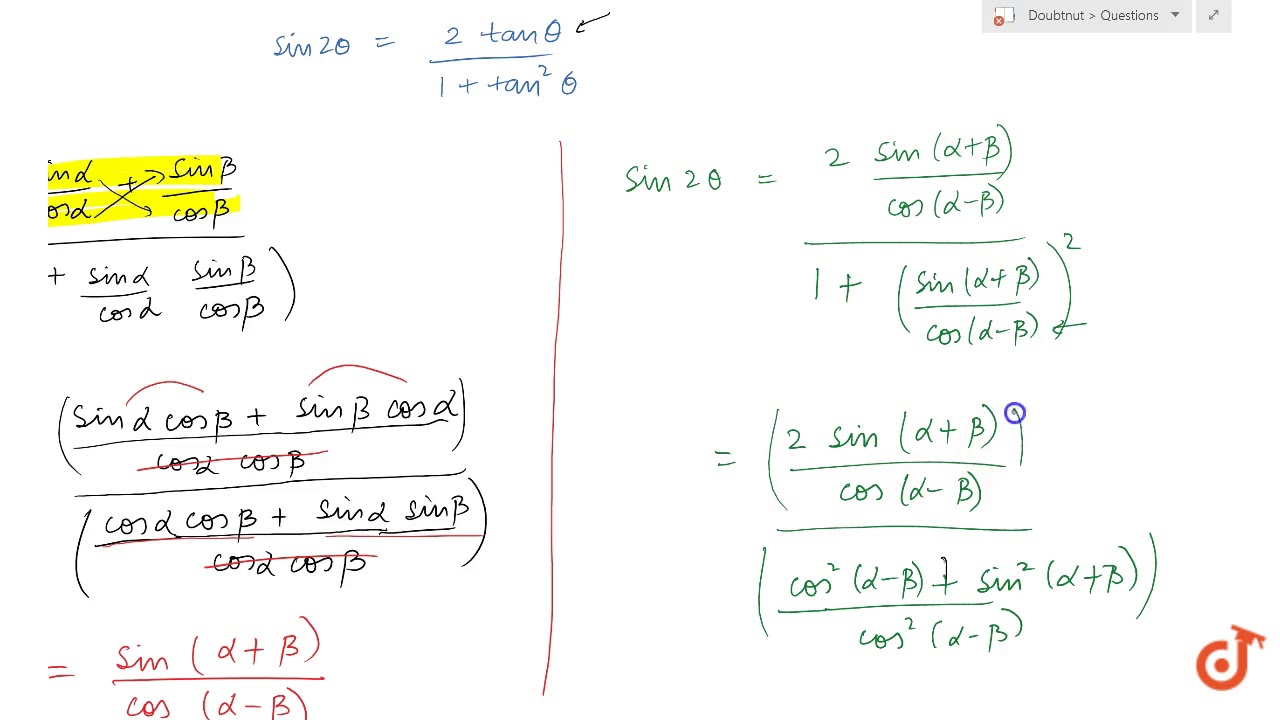 Doubtnut > Questions
sin2θ = 2 tanθ
1 + tan² θ
inα + sinβ
osα cosβ
+ sinα sinβ )
cosα cosβ
( sinα cosβ + sinβ cosα )
cosα cosβ
( cosα cosβ + sinα sinβ )
cosα cosβ
= sin (α+β)
cos (α-β)
sin 2θ = 2 sin (α+β)
cos (α-β)
1 + ( sin (α+β) )²
cos(α-β)
= ( 2 sin (α+β) )
cos (α-β)
( cos² (α-β) + sin² (α+β) )
cos² (α-β)